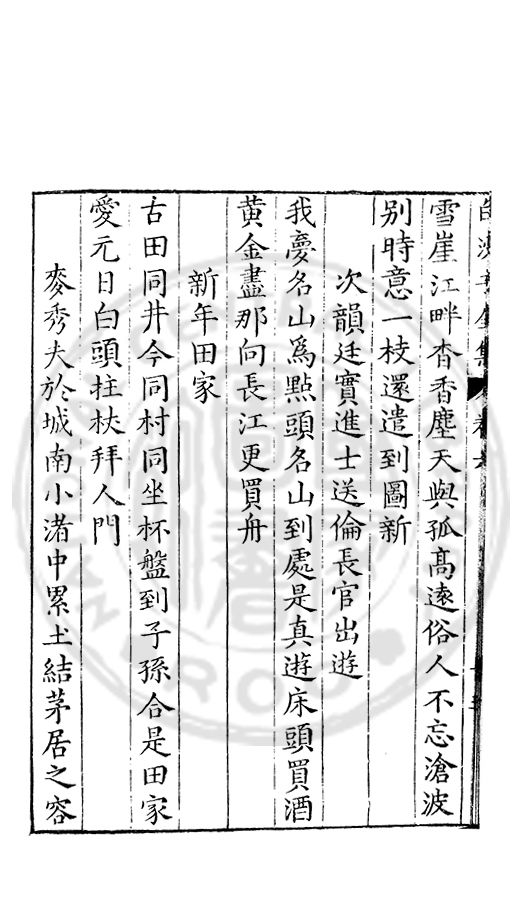 雪崖江畔杳香塵天與孤髙遠俗人不忘滄波
别時意一枝還遣到圖新
次韻廷實進士送倫長官出遊
我夢名山爲點頭名山到處是真遊床頭買酒
黄金盡那向長江更買舟
新年田家
古田同井今同村同坐杯盤到子孫合是田家
愛元日白頭拄杖拜人門
麥秀夫於城南小渚中累土結茅居之容